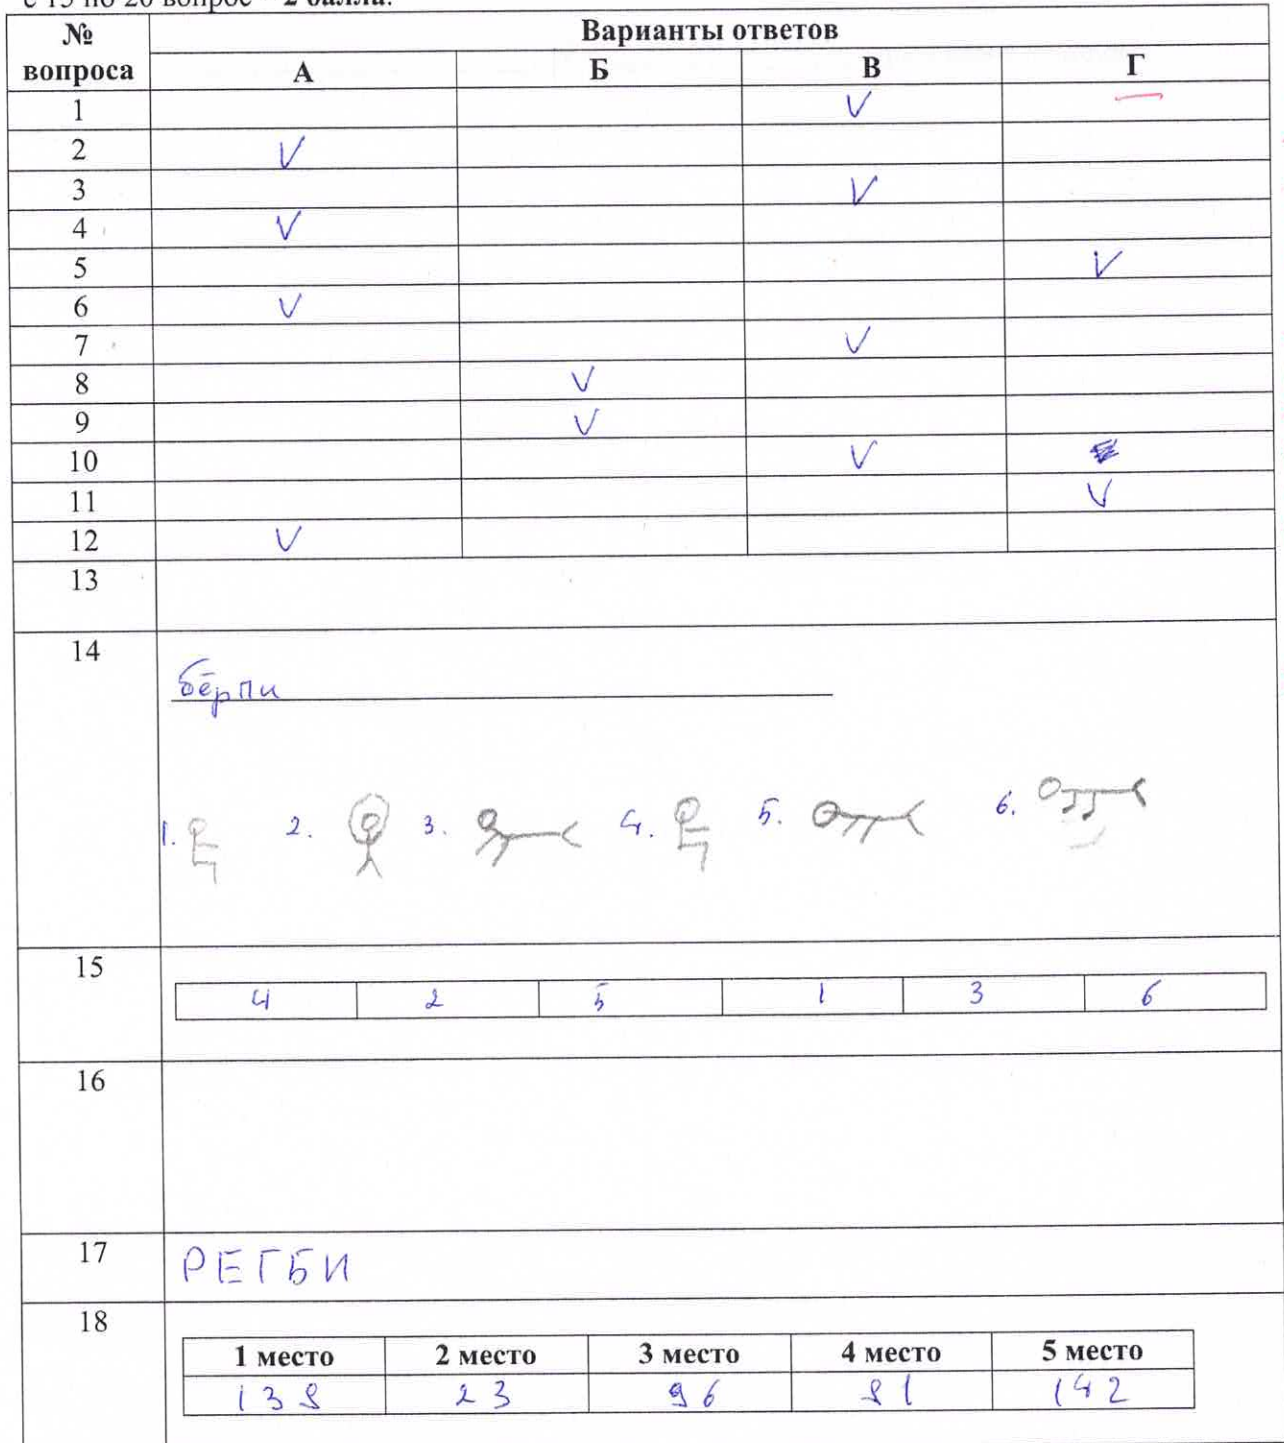 с 15 по 20 вопрос – 2 балла.
№ вопроса Варианты ответов
А Б В Г
1 V
2 V
3 V
4 V
5 V
6 V
7 V
8 V
9 V
10 V
11 V
12 V
13
14
бёрпи
1. 2. 3. 4. 5. 6.
15
4 2 5 1 3 6
16
17 РЕГБИ
18
1 место 2 место 3 место 4 место 5 место
23 96 142